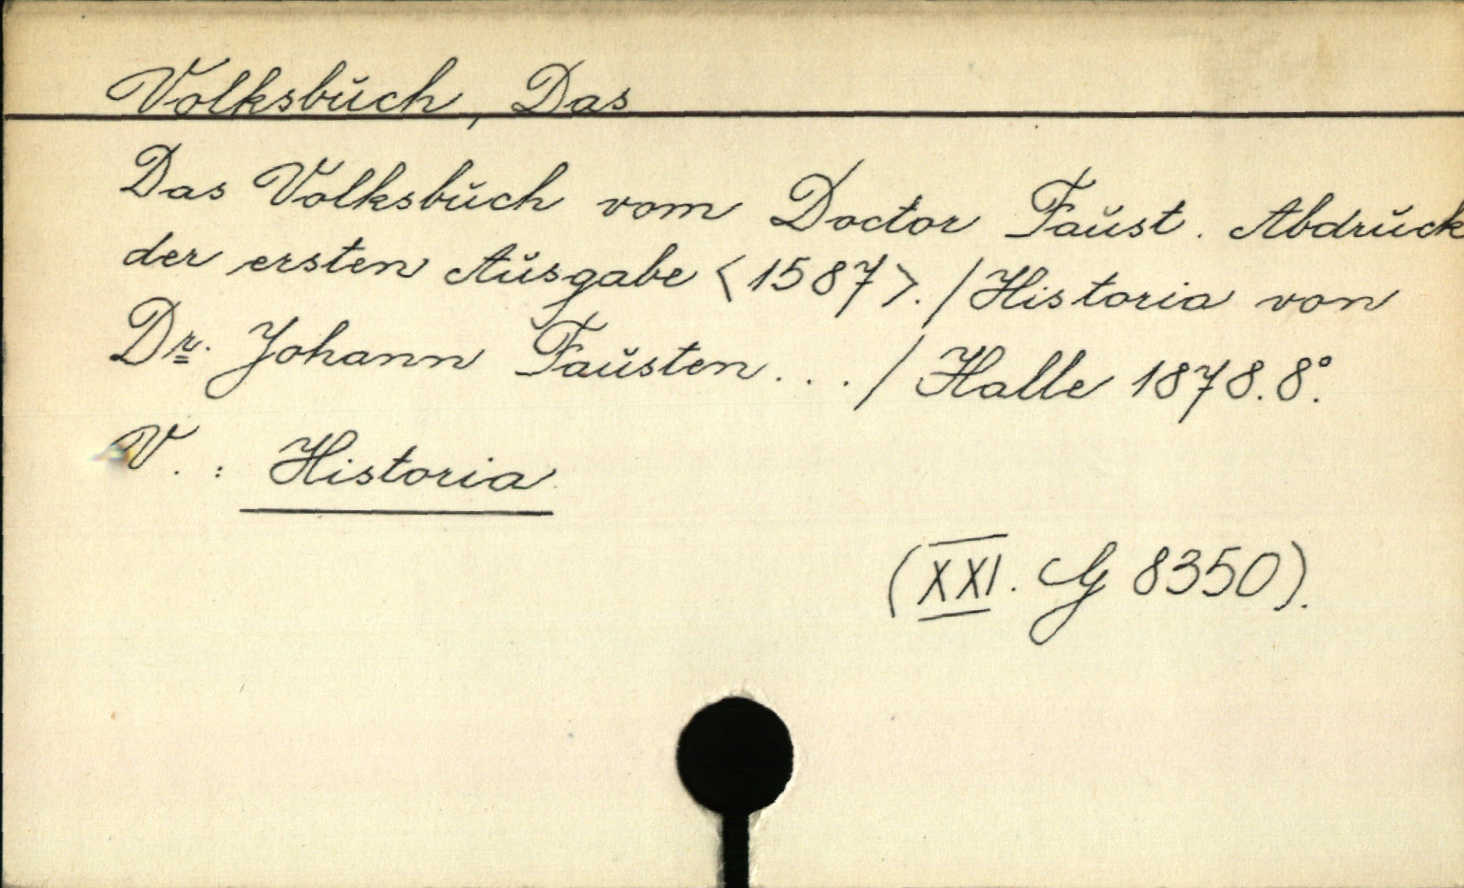 Volksbŭch, Das
Das Volksbŭch vom Doctor Faŭst. Abdrŭck
der ersten Aŭsgabe <1587>. / Historia von
Dr. Johann Faŭsten ... / Halle 1878. 8°.
V. : Historia
(XXI. G 8350).